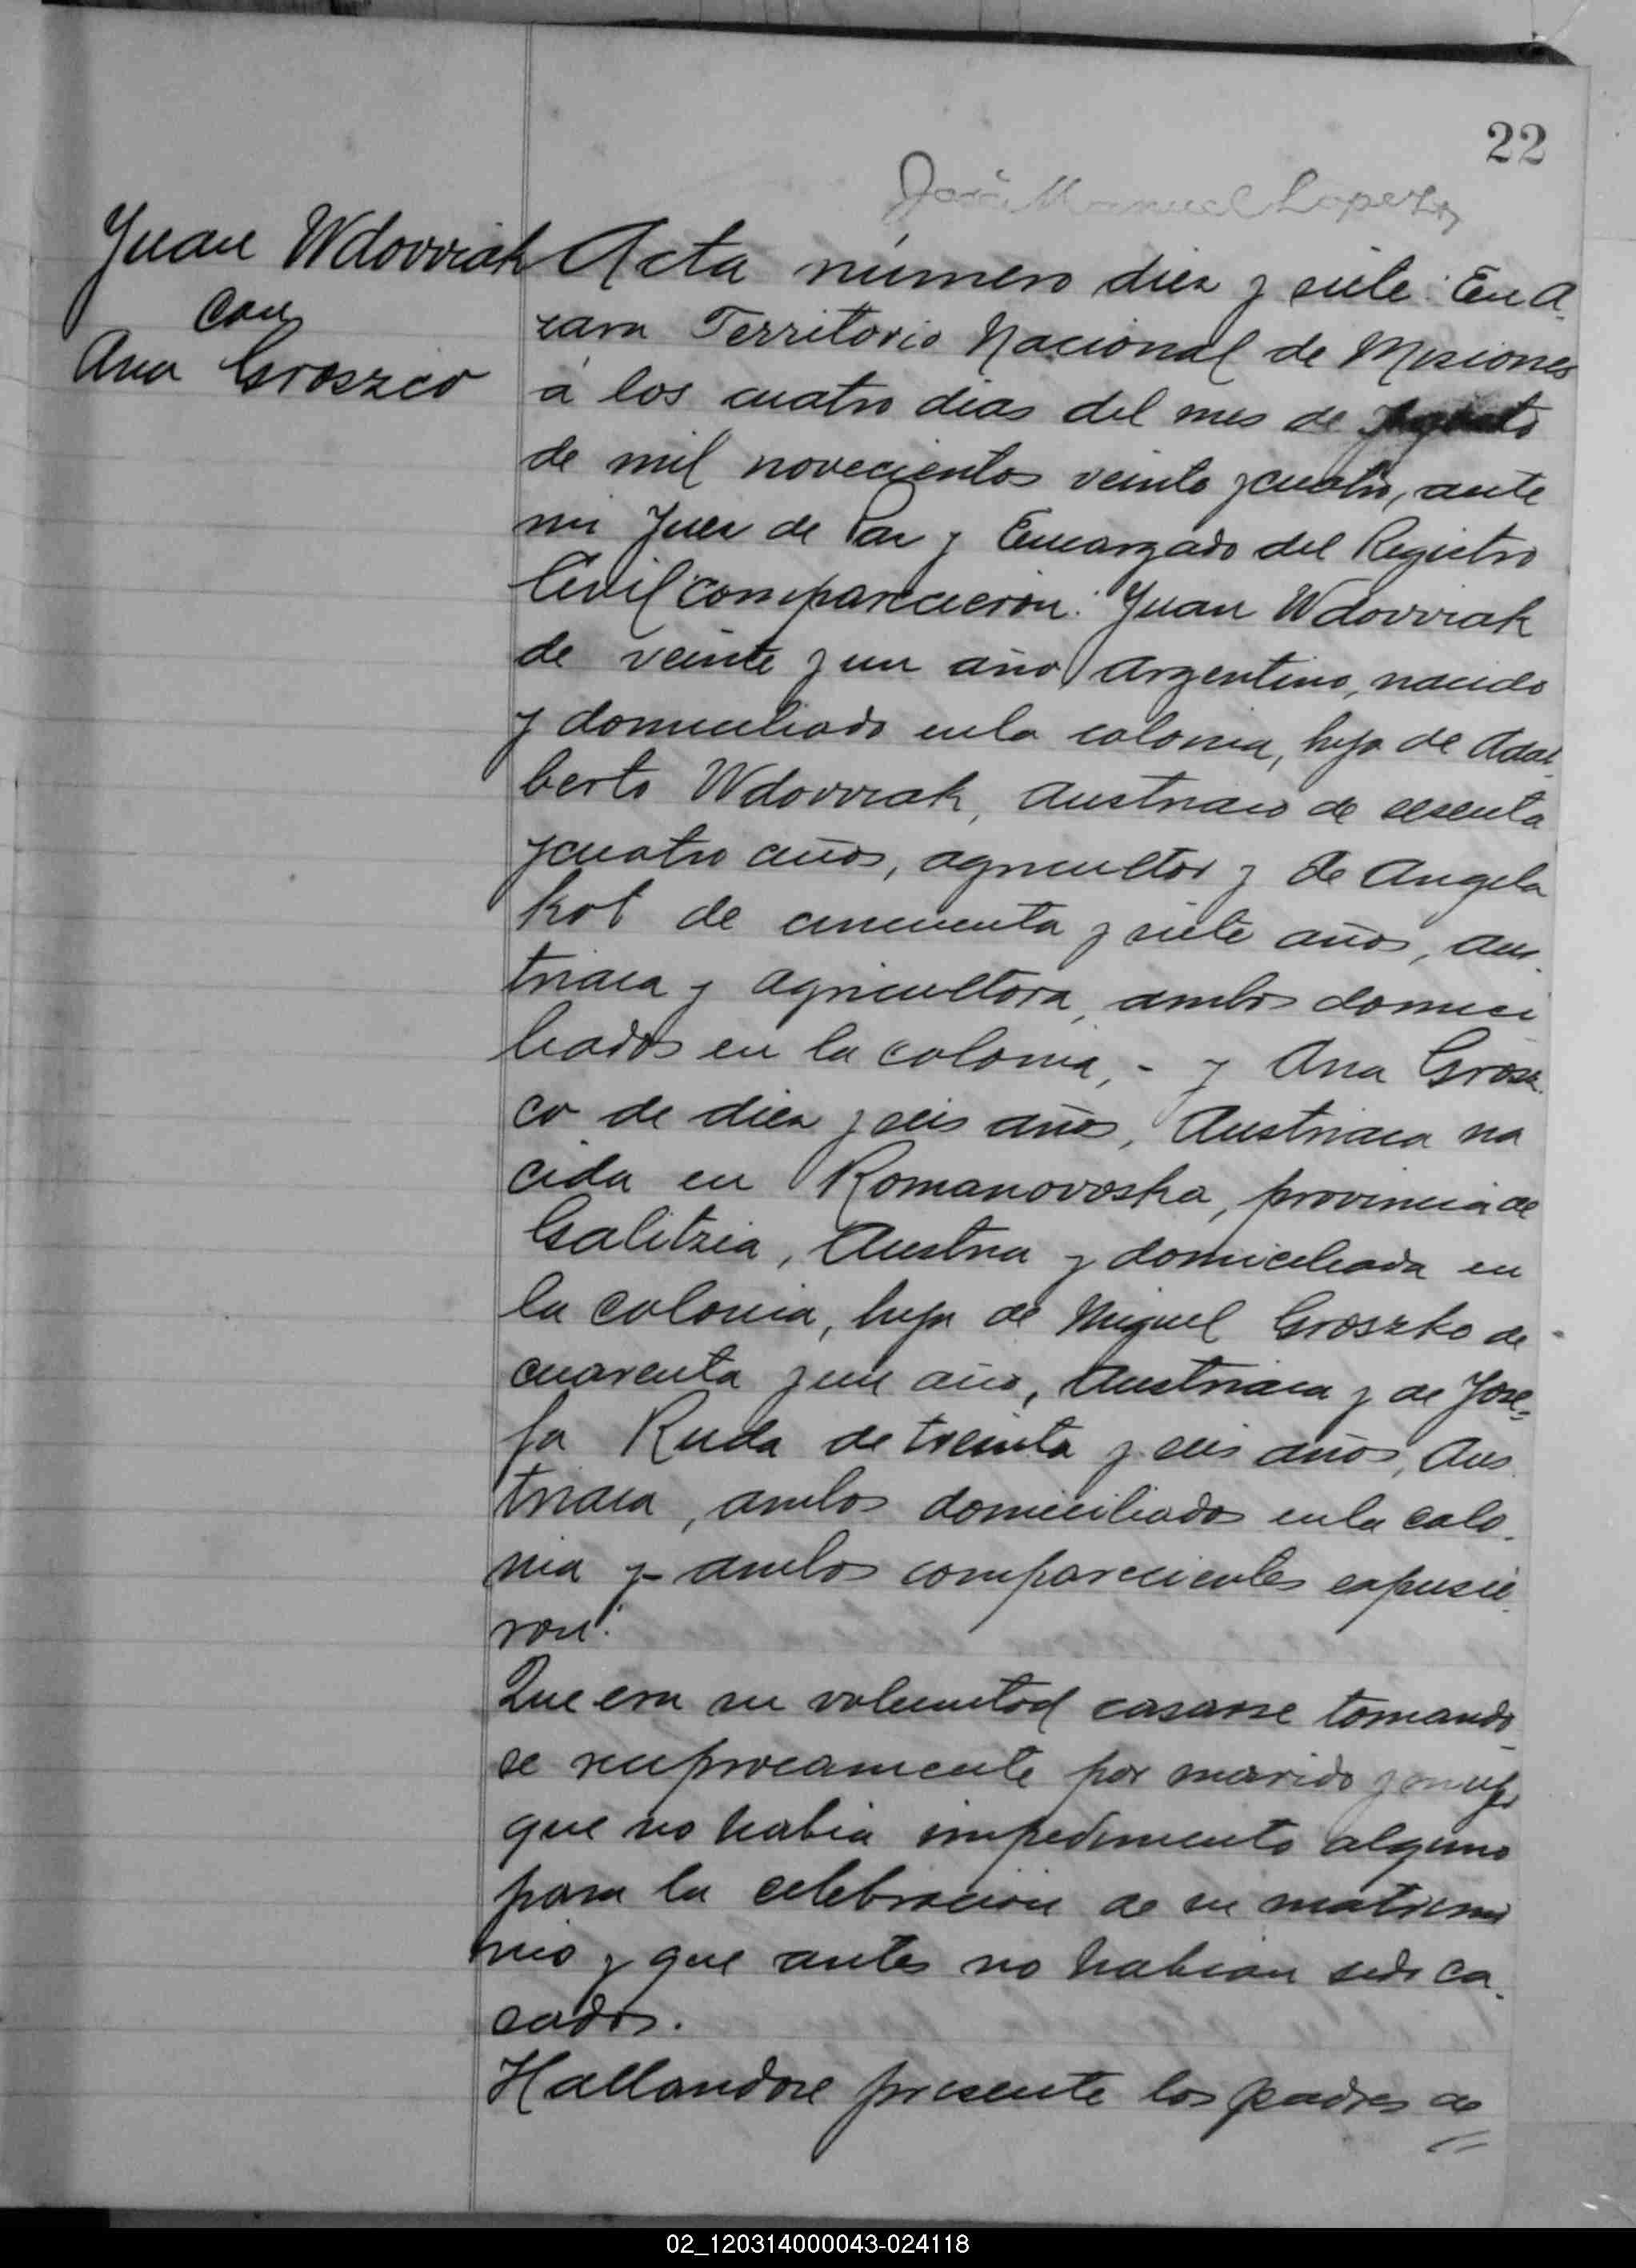 22
José Manuel Lopez
Juan Wdowiak
con
Ana Groszco
Acta número diez y siete: En A-
zara Territorio Nacional de Misiones
á los cuatro dias del mes de Agosto
de mil novecientos veinte y cuatro, ante
mi Juez de Paz y Encargado del Registro
Civil comparecieron: Juan Wdowiak
de veinte y un año, Argentino, nacido
y domiciliado en la colonia, hijo de Adal-
berto Wdowiak, Austriaco de sesenta
y cuatro años, agricultor y de Angela
Kot de cincuenta y siete años, Aus-
triaca y agricultora, ambos domici
liados en la colonia, - y Ana Grosz-
co de diez y seis años, Austriaca na
cida en Romanowoska, provincia de
Galitzia, Austria y domiciliada en
la colonia, hija de Miguel Groszko de
cuarenta y un año, Austriaca y de Jose-
fa Ruda de treinta y seis años, Aus-
triaca, ambos domiciliados en la colo-
nia y- ambos comparecientes expusie-
ron:
Que era su voluntad casarse tomando-
se reciprocamente por marido y mujer
que no habia impedimento alguno
para la celebracion de su matrimo
nio y que antes no habian sido ca-
sados.
Hallandose presente los padres de
02_120314000043-024118